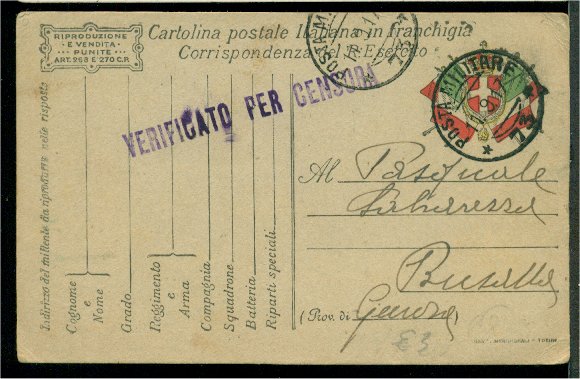 RIPRODUZIONE
E VENDITA
PUNITE
ART. 268 E 270 C.P.
Cartolina postale Italiana in franchigia
Corrispondenza del R. Esercito
POSTA MILITARE
VERIFICATO PER CENSURA
Indirizzo del mittente da riprodurre nelle risposte
Cognome
e
Nome
Grado
Reggimento
e
Arma
Compagnia
Squadrone
Batteria
Riparti speciali
Al Pasquale
Busalla
(Prov. di Genova)
E3